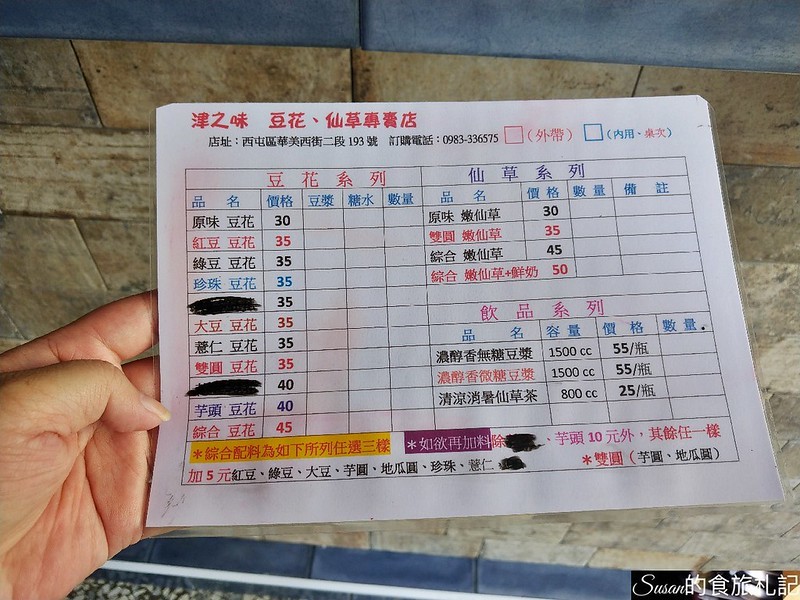 津之味 豆花、仙草專賣店
店址：西屯區華美西街二段193號 訂購電話：0983-336575 □（外帶） □（內用、桌次）
豆花系列
品名 價格 豆漿 糖水 數量
原味 豆花 30
紅豆 豆花 35
綠豆 豆花 35
珍珠 豆花 35
35
大豆 豆花 35
薏仁 豆花 35
雙圓 豆花 35
40
芋頭 豆花 40
綜合 豆花 45
仙草系列
品名 價格 數量 備註
原味 嫩仙草 30
雙圓 嫩仙草 35
綜合 嫩仙草 45
綜合 嫩仙草+鮮奶 50
飲品系列
品名 容量 價格 數量
濃醇香無糖豆漿 1500 cc 55/瓶
濃醇香微糖豆漿 1500 cc 55/瓶
清涼消暑仙草茶 800 cc 25/瓶
＊綜合配料為如下所列任選三樣 ＊如欲再加料除 、芋頭10元外，其餘任一樣
加5元紅豆、綠豆、大豆、芋圓、地瓜圓、珍珠、薏仁 ＊雙圓（芋圓、地瓜圓）
Susan的食旅札記